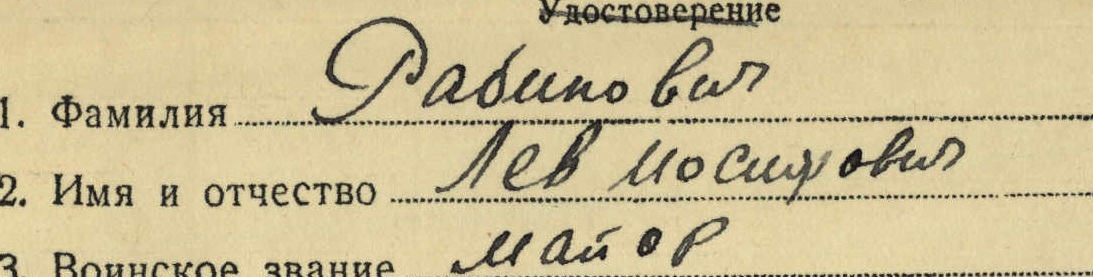 Удостоверение
1. Фамилия Рабинович
2. Имя и отчество Лев Иосифович
3. Воинское звание майор